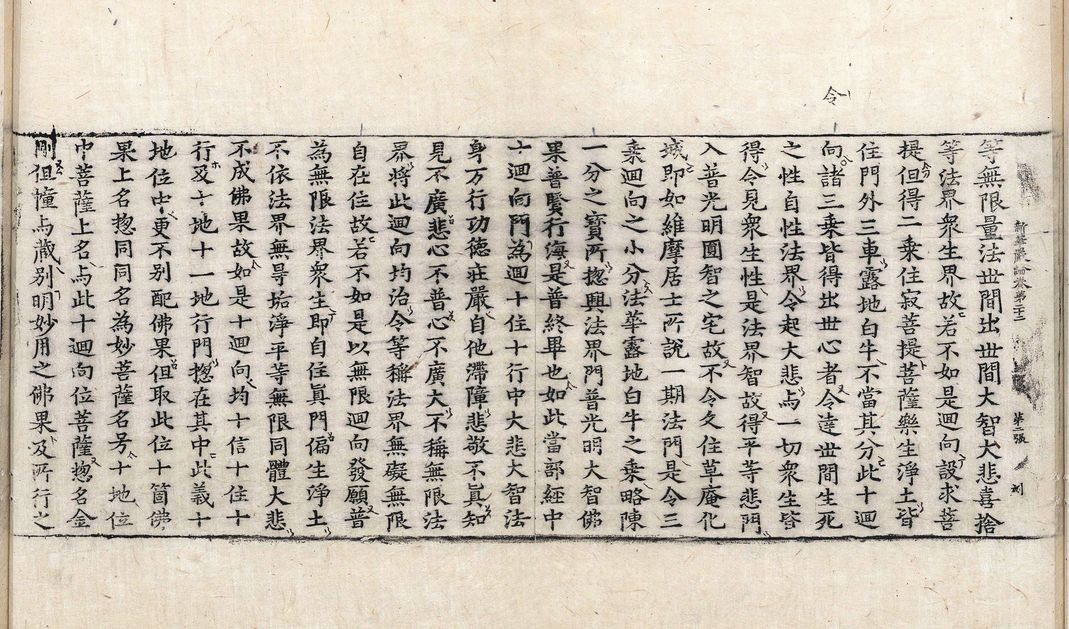 令
新華嚴論卷第二十二 第二張
等無限量法世間出世間大智大悲喜捨
等法界衆生界故若不如是迴向設求菩
提但得二乗住寂菩提菩薩樂生淨土皆
住門外三車露地白牛不當其分此十迴
向諸三乗皆得出世心者令達世間生死
之性自性法界令起大悲与一切衆生皆
得令見衆生性是法界智故得平等悲門
入普光明圓智之宅故不令久住草庵化
城即如維摩居士所說一期法門是令三
乗迴向之小分法華露地白牛之乗略陳
一分之寶所揔與法界門普光明大智佛
果普賢行海是普終畢也如此當部經中
十迴向門為迴十住十行中大悲大智法
身万行功德莊嚴自他滯障悲敬不眞知
見不廣悲心不普心不廣大不稱無限法
界將此迴向均治令等稱法界無礙無限
自在住故若不如是以無限迴向發願普
為無限法界衆生即自住眞門偏生淨土
不依法界無㝵垢淨平等無限同體大悲
不成佛果故如是十迴向均十信十住十
行及十地十一地行門揔在其中此義十
地位中更不别配佛果但取此位十箇佛
果上名揔同同名為妙菩薩名号十地位
中菩薩上名与此十迴向位菩薩揔名金
剛但幢与蔵别明妙用之佛果及所行之